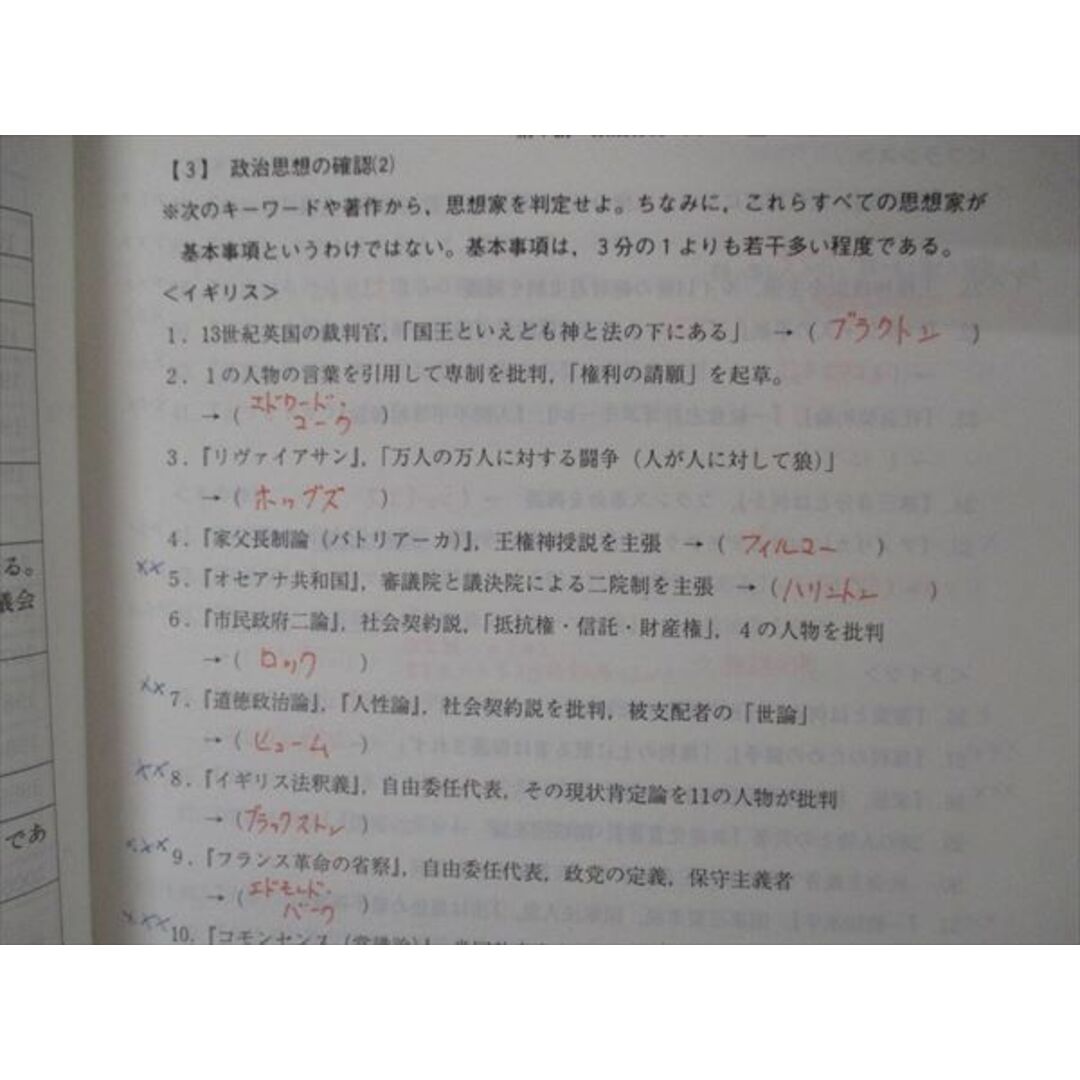 【3】 政治思想の確認(2)
※次のキーワードや著作から，思想家を判定せよ。ちなみに，これらすべての思想家が
基本事項というわけではない。基本事項は，3分の1よりも若干多い程度である。
<イギリス>
1．13世紀英国の裁判官，「国王といえども神と法の下にある」 →（ ブラクトン ）
2．1の人物の言葉を引用して専制を批判，「権利の請願」を起草。
→（ エドワード・コーク ）
3．『リヴァイアサン』，「万人の万人に対する闘争（人が人に対して狼）」
→（ ホッブズ ）
4．『家父長制論（パトリアーカ）』，王権神授説を主張 →（ フィルマー ）
×× 5．『オセアナ共和国』，審議院と議決院による二院制を主張 →（ ハリントン ）
6．『市民政府二論』，社会契約説，「抵抗権・信託・財産権」，4の人物を批判
→（ ロック ）
×× 7．『道徳政治論』，『人性論』，社会契約説を批判，被支配者の「世論」
→（ ヒューム ）
×× 8．『イギリス法釈義』，自由委任代表，その現状肯定論を11の人物が批判
→（ ブラックストン ）
××× 9．『フランス革命の省察』，自由委任代表，政党の定義，保守主義者
→（ エドモンド・バーク ）
××× 10．『コモンセンス（常識論）』，
る。
議会
であ